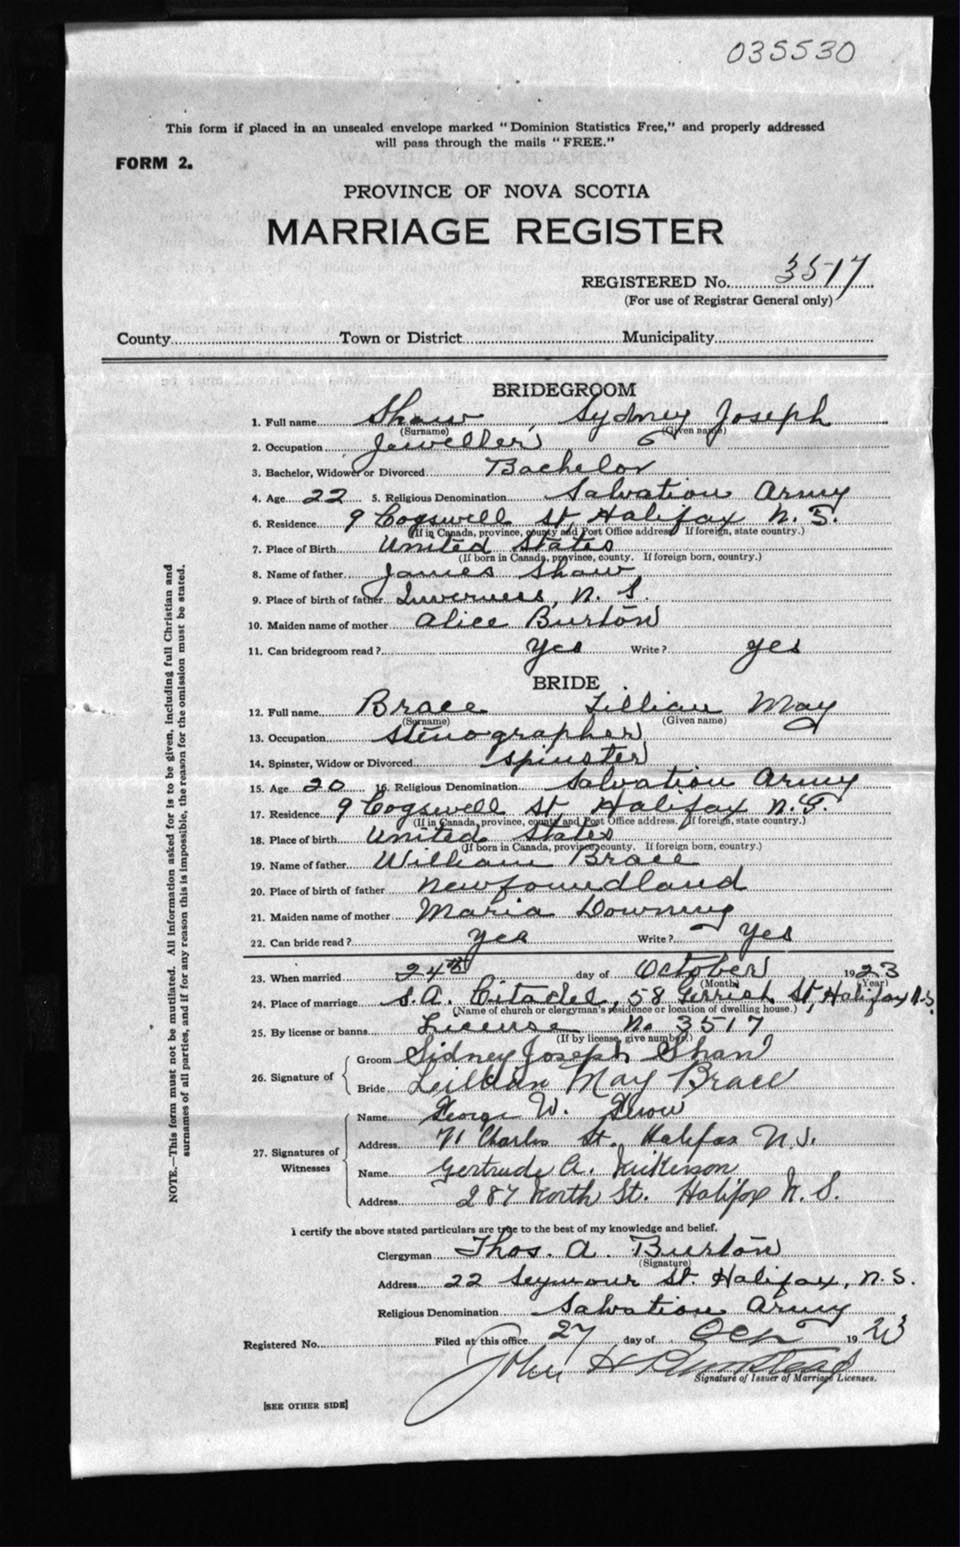 035530
This form if placed in an unsealed envelope marked "Dominion Statistics Free," and properly addressed
will pass through the mails "FREE."
FORM 2.
PROVINCE OF NOVA SCOTIA
MARRIAGE REGISTER
REGISTERED No. 3517
(For use of Registrar General only)
County Town or District Municipality
BRIDEGROOM
1. Full name Shaw, Sydney Joseph
(Surname) (Given name)
2. Occupation Jeweller
3. Bachelor, Widower or Divorced Bachelor
4. Age 22 5. Religious Denomination Salvation Army
6. Residence 9 Cogswell St, Halifax N.S.
(If in Canada, province, county and Post Office address. If foreign, state country.)
7. Place of Birth United States
(If born in Canada, province, county. If foreign born, country.)
8. Name of father James Shaw
9. Place of birth of father Inverness, N.S.
10. Maiden name of mother Alice Burton
11. Can bridegroom read? Yes Write? yes
BRIDE
12. Full name Brace Lillian May
(Surname) (Given name)
13. Occupation Stenographer
14. Spinster, Widow or Divorced Spinster
15. Age 20 16. Religious Denomination Salvation Army
17. Residence 9 Cogswell St, Halifax N.S.
(If in Canada, province, county and Post Office address. If foreign, state country.)
18. Place of birth United States
(If born in Canada, province, county. If foreign born, country.)
19. Name of father William Brace
20. Place of birth of father Newfoundland
21. Maiden name of mother Maria Downing
22. Can bride read? yes Write? yes
23. When married 24th day of October 1923
(Month) (Year)
24. Place of marriage S.A. Citadel, 58 Gerrish St, Halifax N.S.
(Name of church or clergyman's residence or location of dwelling house.)
25. By license or banns License No 3517
(If by license, give number.)
26. Signature of Groom Sidney Joseph Shaw
Bride Lillian May Brace
27. Signatures of Witnesses
Name George W.
Address 71 Charles St. Halifax N.S.
Name Gertrude A. Nickerson
Address 287 North St. Halifax N.S.
I certify the above stated particulars are true to the best of my knowledge and belief.
Clergyman Thos. A. Burton
(Signature)
Address 22 Seymour St. Halifax, N.S.
Religious Denomination Salvation Army
Registered No. Filed at this office 27 day of Oct 1923
John H
Signature of Issuer of Marriage Licenses.
[SEE OTHER SIDE]
NOTE.—This form must not be mutilated. All information asked for is to be given, including full Christian and
surnames of all parties, and if for any reason this is impossible, the reason for the omission must be stated.